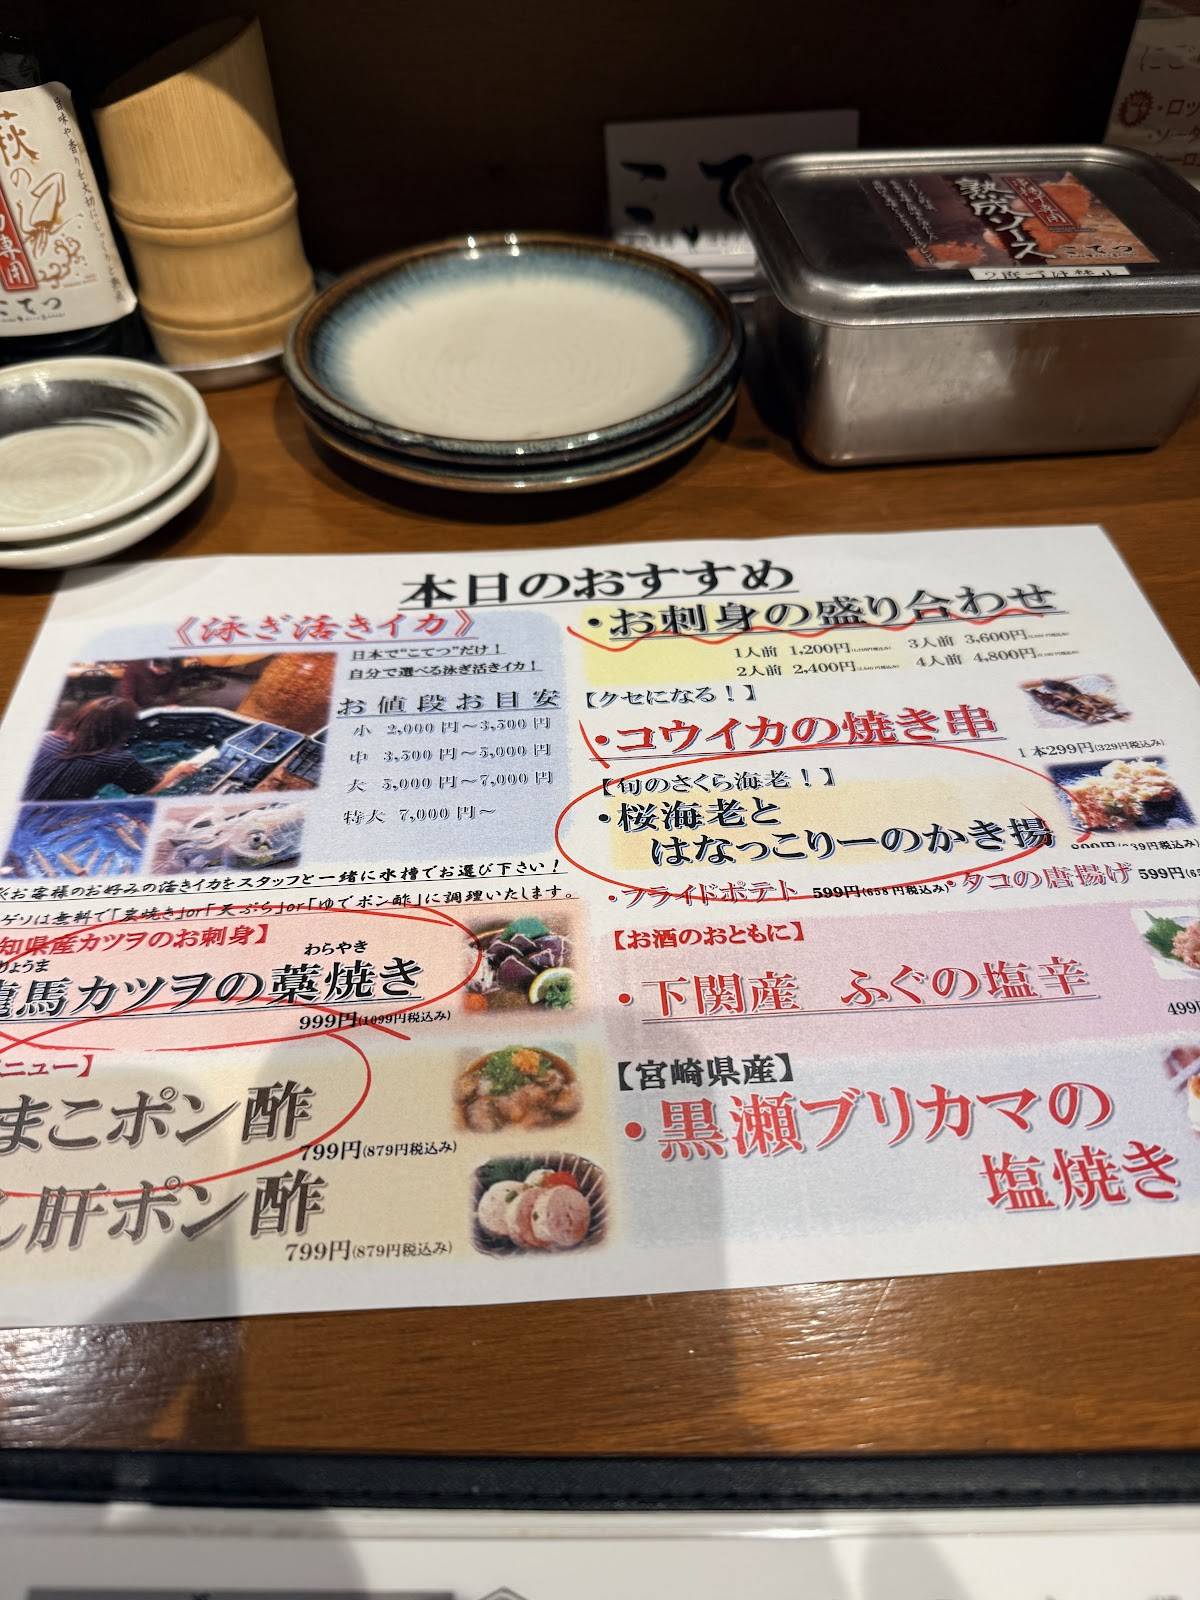 萩の
専用
こてつ
旨味や香りを大切にじっくりと熟成
こてつ
熟成ソース
こてつ
2度づけ禁止
本日のおすすめ
《泳ぎ活きイカ》
日本で"こてつ"だけ！
自分で選べる泳ぎ活きイカ！
お値段お目安
小 2,000円～3,500円
中 3,500円～5,000円
大 5,000円～7,000円
特大 7,000円～
※お客様のお好みの活きイカをスタッフと一緒に水槽でお選び下さい！
ゲソは無料で「炭焼き」or「天ぷら」or「ゆでポン酢」に調理いたします。
知県産カツヲのお刺身】
りょうま わらやき
龍馬カツヲの藁焼き
999円(1099円税込み)
ニュー】
まこポン酢
799円(879円税込み)
肝ポン酢
799円(879円税込み)
・お刺身の盛り合わせ
1人前 1,200円 3人前 3,600円
2人前 2,400円 4人前 4,800円
【クセになる！】
・コウイカの焼き串
1本299円(329円税込み)
【旬のさくら海老！】
・桜海老と
はなっこりーのかき揚
・フライドポテト 599円(658円税込み)
・タコの唐揚げ 599円
【お酒のおともに】
・下関産 ふぐの塩辛
499円
【宮崎県産】
・黒瀬ブリカマの
塩焼き